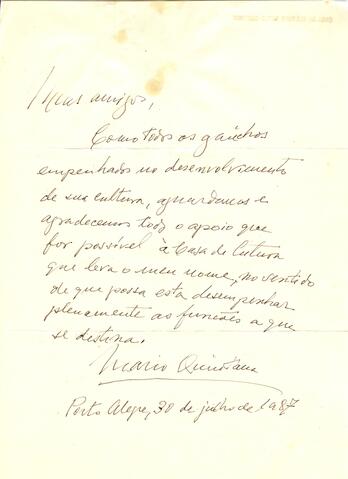 Meus amigos,
Como todos os gaúchos
empenhados no desenvolvimento
de sua cultura, aguardamos e
agradecemos todo o apoio que
for possível à Casa de Cultura
que leva o meu nome, no sentido
de que possa esta desempenhar
plenamente as funções a que
se destina.
Mario Quintana
Porto Alegre, 30 de julho de 1987